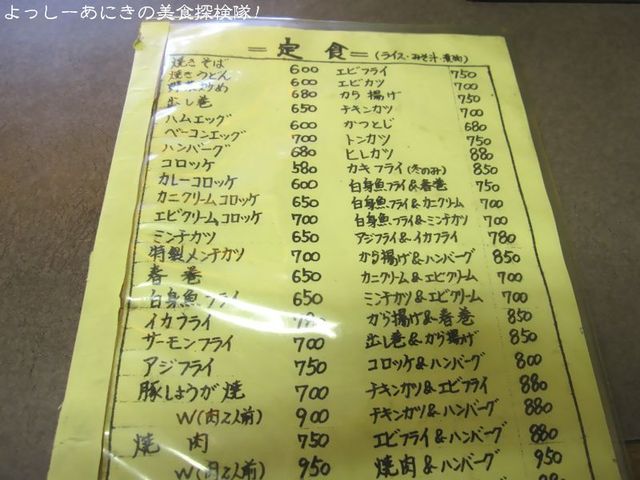 よっしーあにきの美食探検隊!
=定食=(ライス・みそ汁・煮物)
焼きそば 600
焼きうどん 600
野菜炒め 680
出し巻 650
ハムエッグ 600
ベーコンエッグ 700
ハンバーグ 680
コロッケ 580
カレーコロッケ 600
カニクリームコロッケ 650
エビクリームコロッケ 700
ミンチカツ 650
特製メンチカツ 700
春巻 650
白身魚フライ 650
イカフライ 780
サーモンフライ 700
アジフライ 750
豚しょうが焼 700
W(肉2人前) 900
焼肉 750
W(肉2人前) 950
エビフライ 750
エビカツ 700
から揚げ 750
チキンカツ 700
かつとじ 680
トンカツ 750
ヒレカツ 880
カキフライ(冬のみ) 850
白身魚フライ&春巻 750
白身魚フライ&カニクリーム 700
白身魚フライ&ミンチカツ 700
アジフライ&イカフライ 780
から揚げ&ハンバーグ 850
カニクリーム&エビクリーム 700
ミンチカツ&エビクリーム 700
から揚げ&春巻 850
出し巻&から揚げ 850
コロッケ&ハンバーグ 800
チキンカツ&エビフライ 880
チキンカツ&ハンバーグ 880
エビフライ&ハンバーグ 880
焼肉&ハンバーグ 950